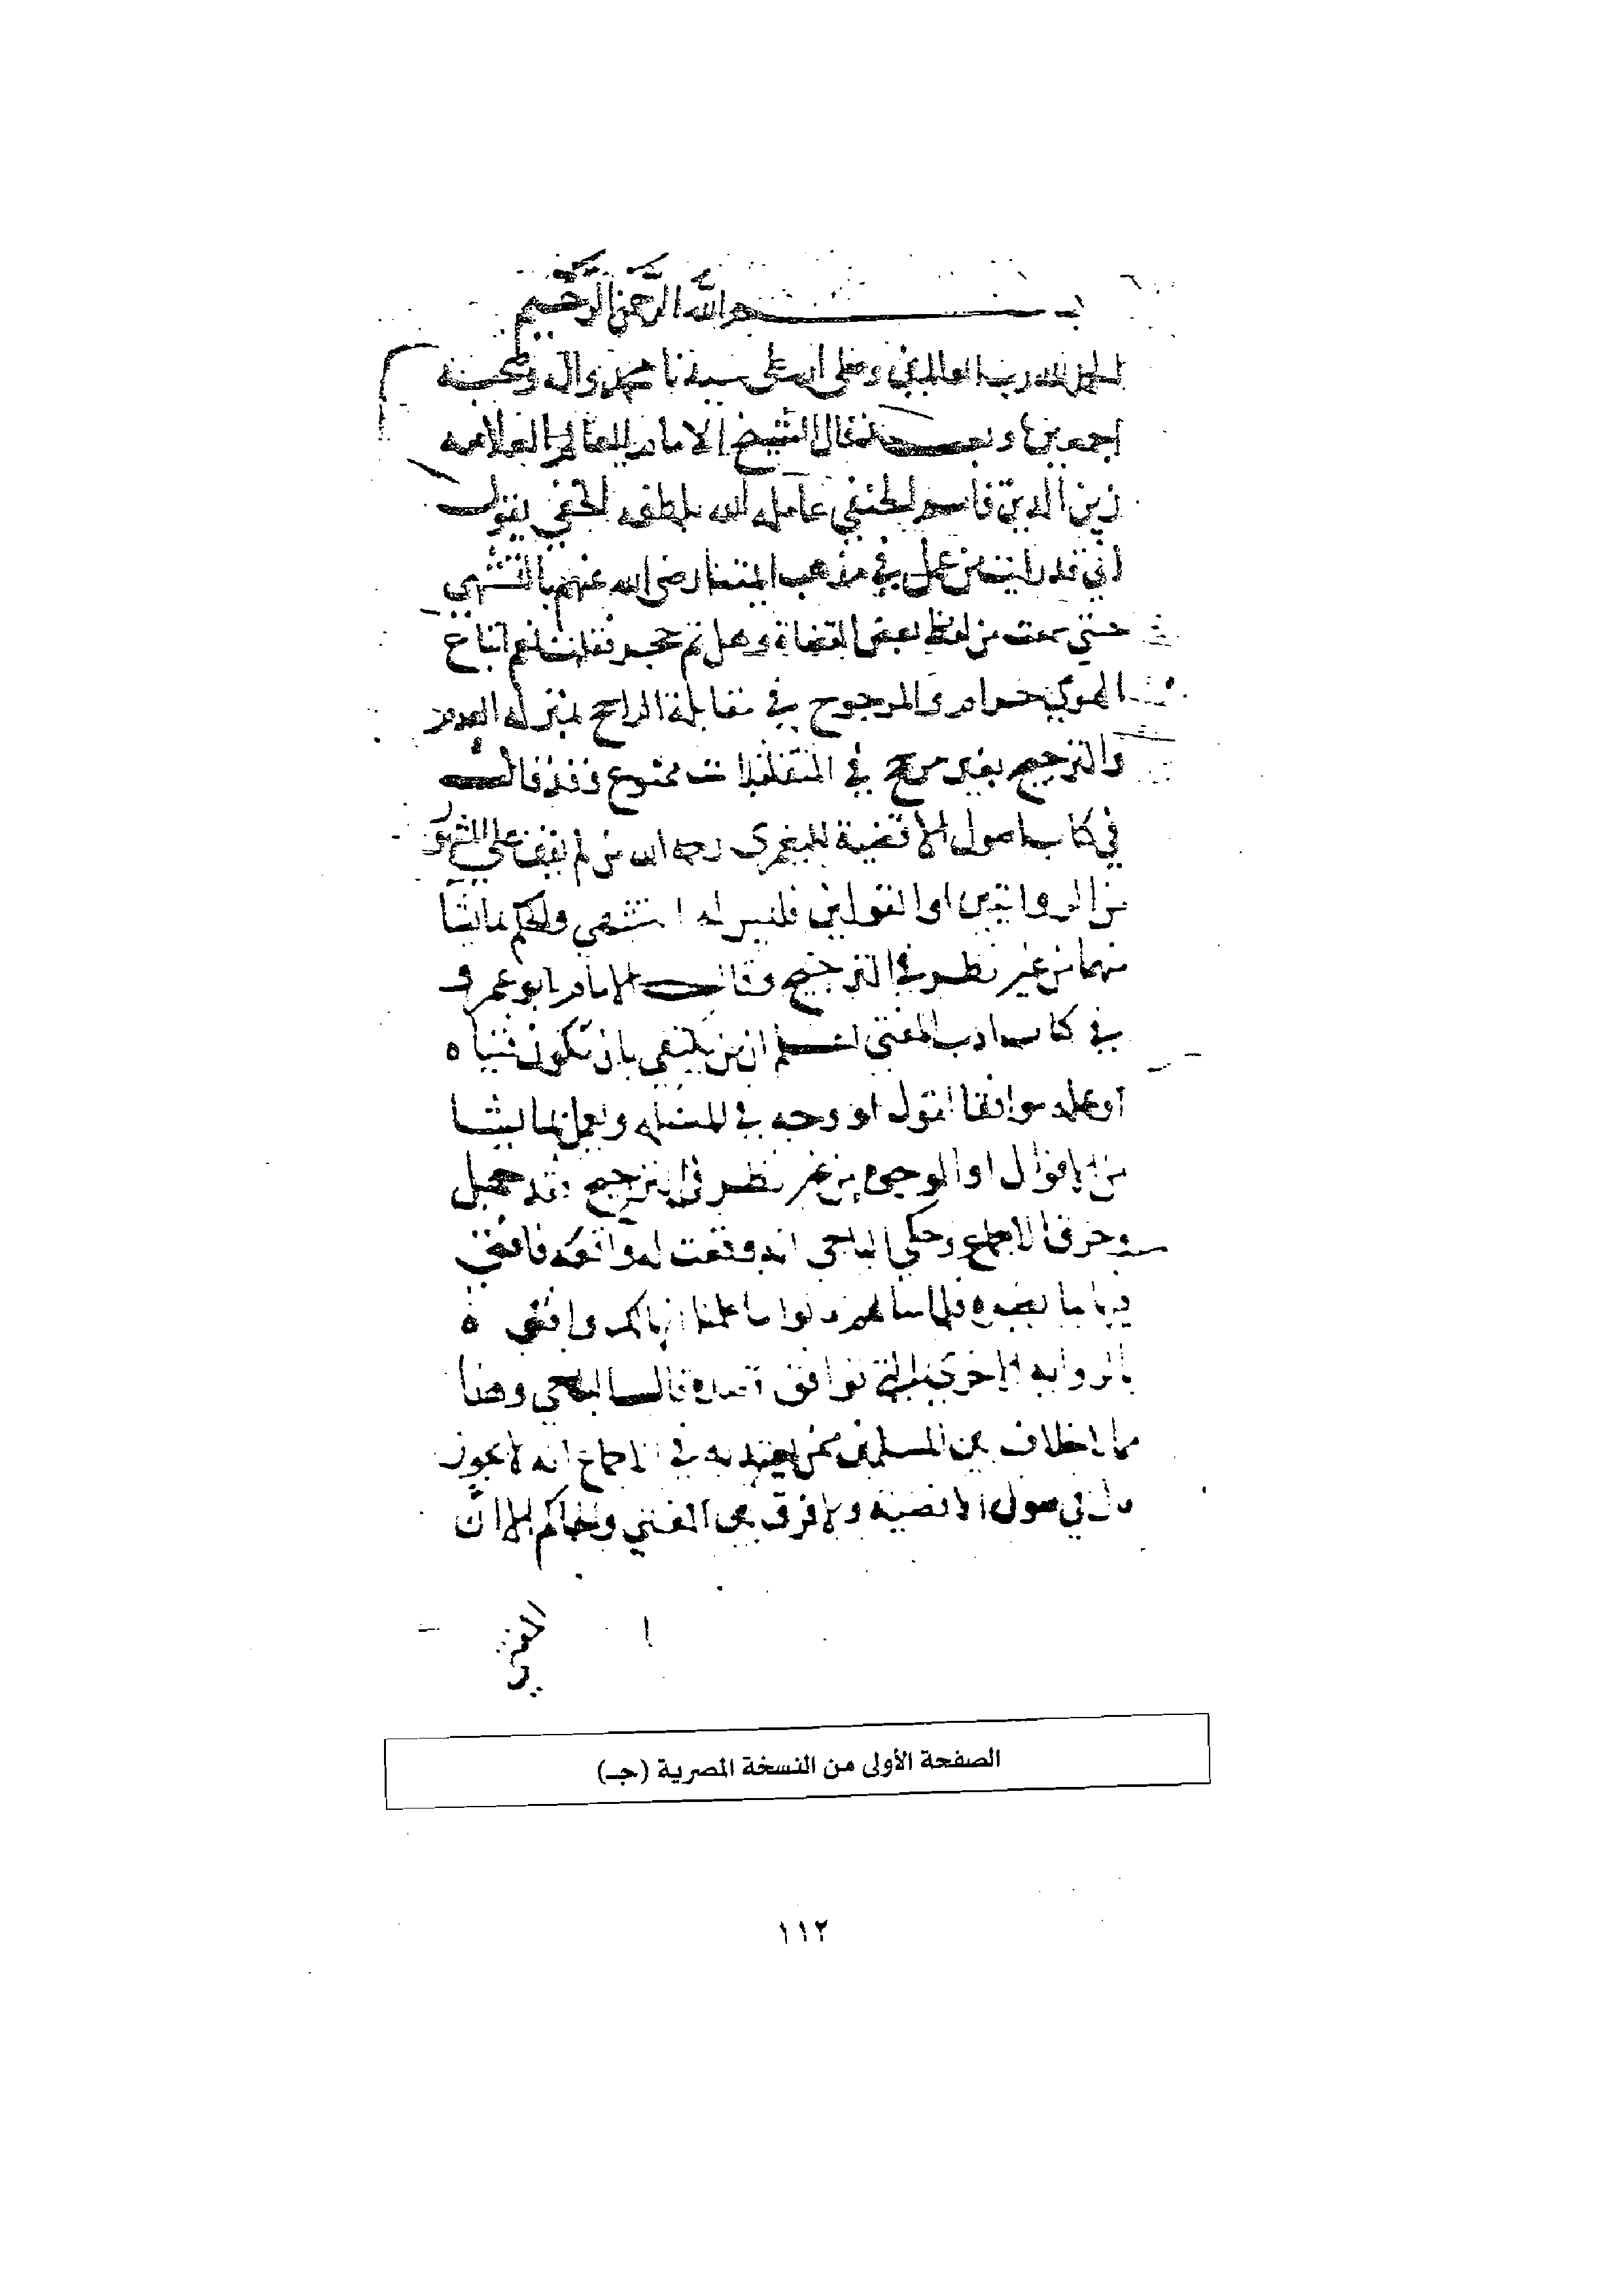 بسم الله الرحمن الرحيم
الحمد لله رب العالمين وصلى الله على سيدنا محمد وآله وصحبه
اجمعين وبعد فقال الشيخ الامام العالم العلامه
زين الدين قاسم الحنفي عامله الله بلطفه الخفي يقول
اني قد رايت من عمل في مذهب ايمتنا رضي الله عنهم بالتشهي
حتى سمعت من لفظ بعض القضاة وهل ثم حجر فقلت نعم اتباع
الهوى حرام والمرجوح في مقابلة الراجح بمنزله العدم
والترجيح بغير مرجح في المتقابلات ممنوع وقد قال
في كتاب اصول الاقضية لليعمري رحمه الله من لم يقف على المشهور
من الروايتين او القولين فليس له التشهي والحكم بما يشا
منهما من غير نظر في الترجيح وقال الامام ابو عمرو
في كتاب ادب المفتي اعلم ان من يكتفي بان تكون فتياه
او عمله موافقا لقول او وجه في المسئله ويعمل بما يشا
من الاقوال او الوجوه من غير نظر في الترجيح فقد جهل
وخرق الاجماع وحكى الباجي انه وقعت له واقعه فافتي
فيها بما يضره فلما سالهم قالوا ما علمنا انها لك وافتوه
بالروايه الاخرى التي توافق قصده قال الباجي وهذا
مما لا خلاف بين المسلمين ممن يعتد به في الاجماع انه لا يجوز
قال في اصول الاقضية ولا فرق بين المفتي والحاكم الا ان
المفتي
الصفحة الأولى من النسخة المصرية (جـ)
١١٢